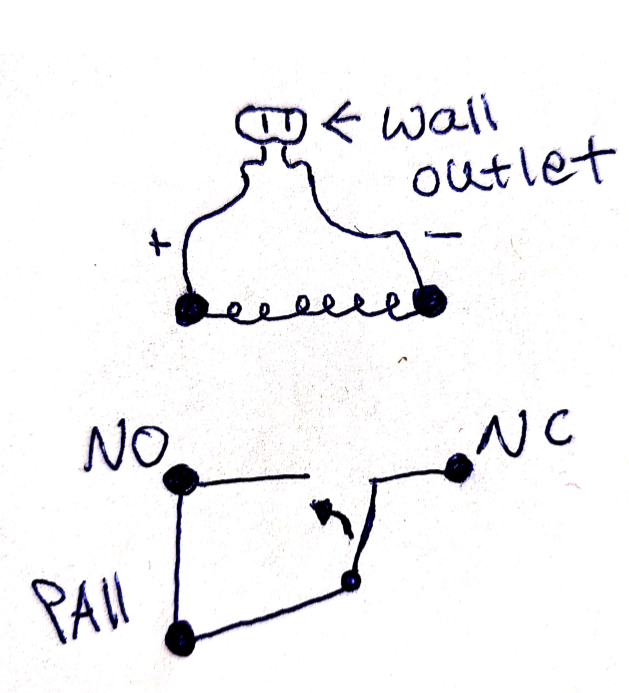 ← Wall
outlet
+ −
NO
NC
PAll